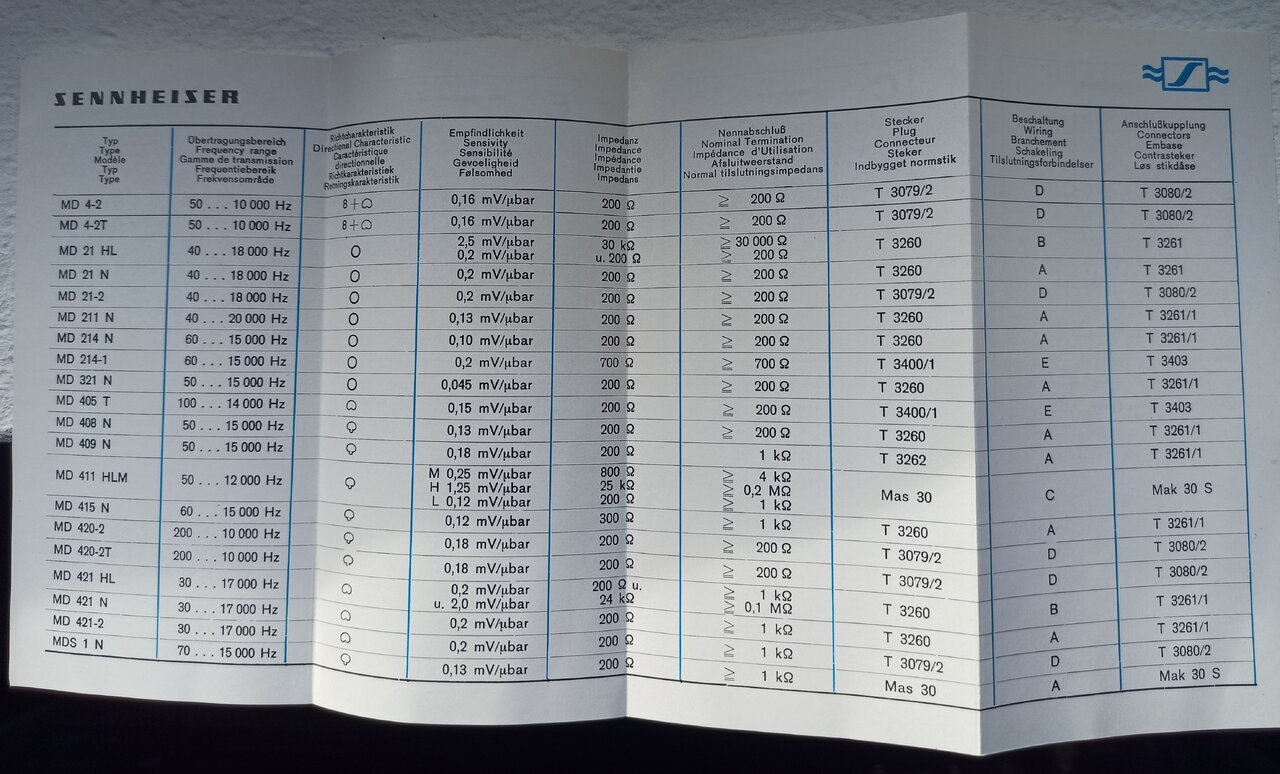 SENNHEISER
Typ
Type
Modèle
Typ
Type
Übertragungsbereich
Frequency range
Gamme de transmission
Frequentiebereik
Frekvensområde
Richtcharakteristik
Directional Characteristic
Caractéristique
directionnelle
Richtkarakteristiek
Retningskarakteristik
Empfindlichkeit
Sensivity
Sensibilité
Gevoeligheid
Følsomhed
Impedanz
Impedance
Impédance
Impedantie
Impedans
Nennabschluß
Nominal Termination
Impédance d'Utilisation
Afsluitweerstand
Normal tilslutningsimpedans
Stecker
Plug
Connecteur
Steker
Indbygget normstik
Beschaltung
Wiring
Branchement
Schakeling
Tilslutningsforbindelser
Anschlußkupplung
Connectors
Embase
Contrasteker
Løs stikdåse
MD 4-2 50 . . . 10 000 Hz 8 + 0,16 mV/μbar 200 Ω ≧ 200 Ω T 3079/2 D T 3080/2
MD 4-2T 50 . . . 10 000 Hz 8 + 0,16 mV/μbar 200 Ω ≧ 200 Ω T 3079/2 D T 3080/2
MD 21 HL 40 . . . 18 000 Hz O 2,5 mV/μbar 30 kΩ ≧ 30 000 Ω T 3260 B T 3261
0,2 mV/μbar u. 200 Ω ≧ 200 Ω
MD 21 N 40 . . . 18 000 Hz O 0,2 mV/μbar 200 Ω ≧ 200 Ω T 3260 A T 3261
MD 21-2 40 . . . 18 000 Hz O 0,2 mV/μbar 200 Ω ≧ 200 Ω T 3079/2 D T 3080/2
MD 211 N 40 . . . 20 000 Hz O 0,13 mV/μbar 200 Ω ≧ 200 Ω T 3260 A T 3261/1
MD 214 N 60 . . . 15 000 Hz O 0,10 mV/μbar 200 Ω ≧ 200 Ω T 3260 A T 3261/1
MD 214-1 60 . . . 15 000 Hz O 0,2 mV/μbar 700 Ω ≧ 700 Ω T 3400/1 E T 3403
MD 321 N 50 . . . 15 000 Hz O 0,045 mV/μbar 200 Ω ≧ 200 Ω T 3260 A T 3261/1
MD 405 T 100 . . . 14 000 Hz 0,15 mV/μbar 200 Ω ≧ 200 Ω T 3400/1 E T 3403
MD 408 N 50 . . . 15 000 Hz 0,13 mV/μbar 200 Ω ≧ 200 Ω T 3260 A T 3261/1
MD 409 N 50 . . . 15 000 Hz 0,18 mV/μbar 200 Ω 1 kΩ T 3262 A T 3261/1
MD 411 HLM 50 . . . 12 000 Hz M 0,25 mV/μbar 800 Ω ≧ 4 kΩ Mas 30 C Mak 30 S
H 1,25 mV/μbar 25 kΩ ≧ 0,2 MΩ
L 0,12 mV/μbar 200 Ω ≧ 1 kΩ
MD 415 N 60 . . . 15 000 Hz 0,12 mV/μbar 300 Ω ≧ 1 kΩ T 3260 A T 3261/1
MD 420-2 200 . . . 10 000 Hz 0,18 mV/μbar 200 Ω ≧ 200 Ω T 3079/2 D T 3080/2
MD 420-2T 200 . . . 10 000 Hz 0,18 mV/μbar 200 Ω ≧ 200 Ω T 3079/2 D T 3080/2
MD 421 HL 30 . . . 17 000 Hz 0,2 mV/μbar 200 Ω u. ≧ 1 kΩ T 3260 B T 3261/1
u. 2,0 mV/μbar 24 kΩ ≧ 0,1 MΩ
MD 421 N 30 . . . 17 000 Hz 0,2 mV/μbar 200 Ω ≧ 1 kΩ T 3260 A T 3261/1
MD 421-2 30 . . . 17 000 Hz 0,2 mV/μbar 200 Ω ≧ 1 kΩ T 3079/2 D T 3080/2
MDS 1 N 70 . . . 15 000 Hz 0,13 mV/μbar 200 Ω ≧ 1 kΩ Mas 30 A Mak 30 S